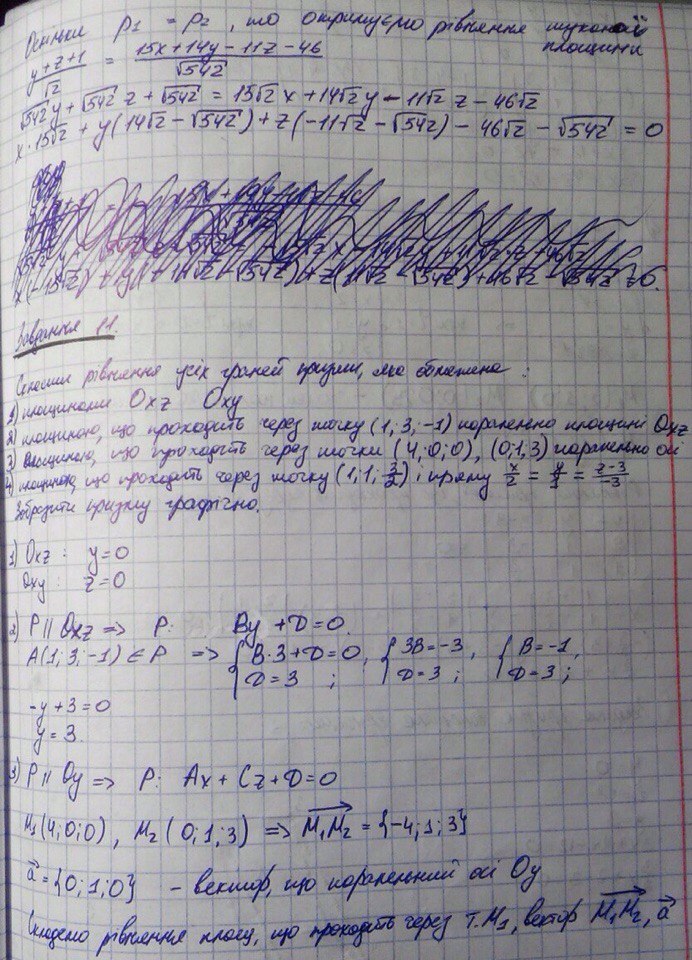 Оскільки P₁ = P₂, то отримуємо рівняння шуканої площини
(y+z+1)/√2 = (15x+14y-11z-46)/√542
√542 y + √542 z + √542 = 15√2 x + 14√2 y - 11√2 z - 46√2
x·15√2 + y(14√2 - √542) + z(-11√2 - √542) - 46√2 - √542 = 0
Завдання 11.
Скласти рівняння усіх граней призми, яка обмежена:
1) площинами Oxz Oxy
2) площиною, що проходить через точку (1; 3; -1) паралельно площині Oxz
3) площиною, що проходить через точки (4; 0; 0), (0; 1; 3) паралельно осі
4) площиною, що проходить через точку (1; 1; 3/2) і пряму x/2 = y/3 = (z-3)/-3
Зобразити призму графічно.
1) Oxz: y=0
Oxy: z=0
2) P || Oxz => P: By + D = 0.
A(1; 3; -1) ∈ P => { B·3 + D = 0, D = 3; { 3B = -3, D = 3; { B = -1, D = 3;
-y + 3 = 0
y = 3.
3) P || Oy => P: Ax + Cz + D = 0
M₁(4; 0; 0), M₂(0; 1; 3) => M₁M₂ = {-4; 1; 3}
a = {0; 1; 0} - вектор, що паралельний осі Oy
Складемо рівняння площ, що проходить через т. M₁, вектор M₁M₂, a